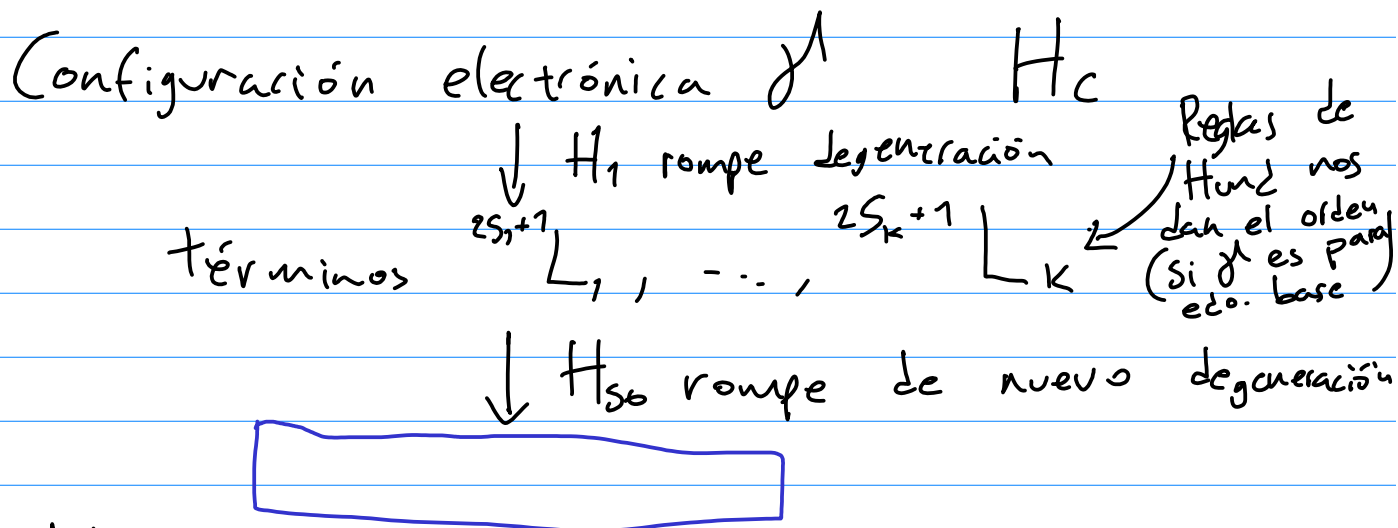 Configuración electrónica γ H_C
↓ H_1 rompe degeneración
Reglas de
Hund nos
dan el orden
(si γ es para
edo. base)
términos ^{2S_1+1}L_1, ..., ^{2S_K+1}L_K
↓ H_{SO} rompe de nuevo degeneración